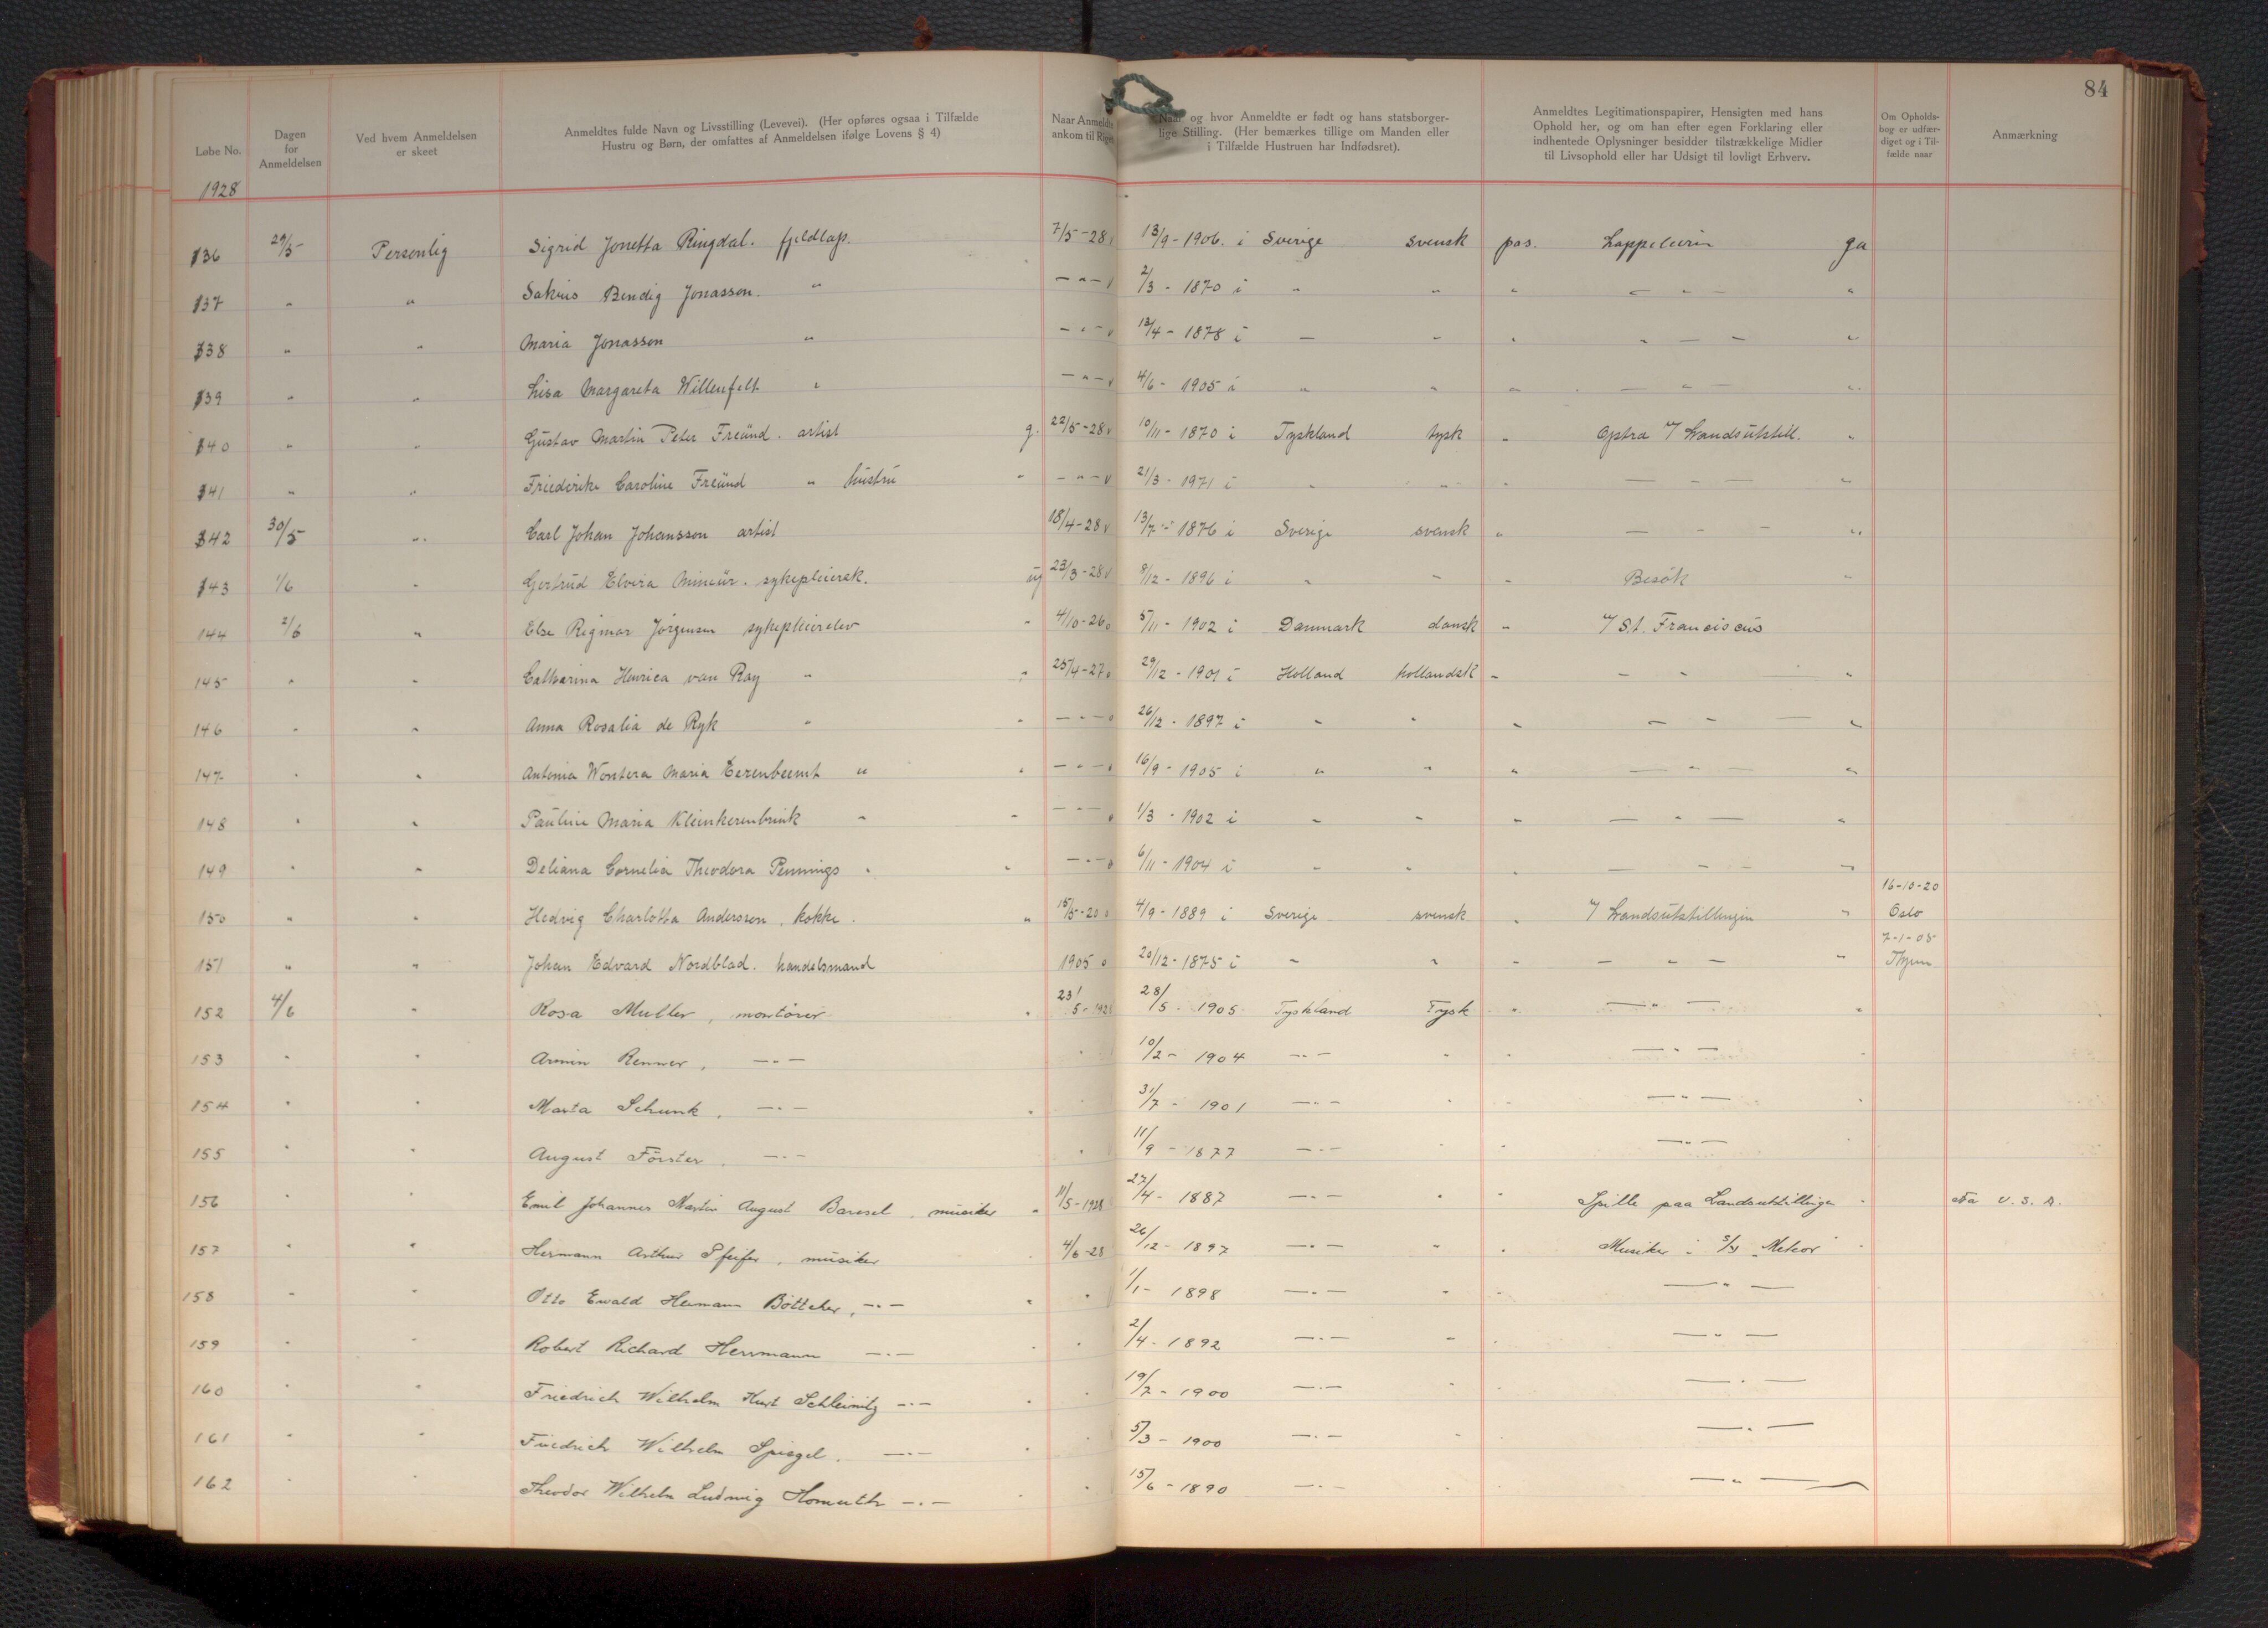 84
Løbe No. Dagen for Anmeldelsen Ved hvem Anmeldelsen er skeet Anmeldtes fulde Navn og Livsstilling (Levevei). (Her opføres ogsaa i Tilfælde Hustru og Børn, der omfattes af Anmeldelsen ifølge Lovens § 4) Naar Anmeldte ankom til Riget og hvor Anmeldte er født og hans statsborgerlige Stilling. (Her bemærkes tillige om Manden eller i Tilfælde Hustruen har Indfødsret). Anmeldtes Legitimationspapirer, Hensigten med hans Ophold her, og om han efter egen Forklaring eller indhentede Oplysninger besidder tilstrækkelige Midler til Livsophold eller har Udsigt til lovligt Erhverv. Om Opholdsbog er udfærdiget og i Tilfælde naar Anmærkning
1928
136 29/5 Personlig Sigrid Jonetta Ringdal. fjeldlap. 7/5-28 13/9-1906. i Sverige svensk pas. ga
137 " " Bendig Jonasson. " - " - 2/3 - 1870 i " " " - " - "
138 " " Maria Jonasson " - " - 13/4 - 1878 i - " " " - - "
139 " " Lisa Margareta Willenfelt " - " - 4/6 - 1905 i " " " - " - "
140 " " Gustav Martin Peter Freünd. artist g. 22/5-28 10/11 - 1870 i Tyskland tysk " Optra v/ Landsutstill. "
141 " " Friederike Caroline Freünd " hüstrü " - " - 21/3 - 1971 i " " " - - - "
142 30/5 " Carl Johan Johansson artist 18/4-28 13/7 - 1876 i Sverige svensk " - - - "
143 1/6 " Gertrud Elvira . ug 23/3-28 8/12 - 1896 i " " " Besök "
144 2/6 " Else Rigmor Jørgensen sykepleierelev " 4/10-26 5/11 - 1902 i Danmark dansk " v/ St. Franciscus
145 " " Catharina Henrica van Ray " " 25/4-27 29/12 - 1901 i Holland hollandsk " - " - "
146 " " Anna Rosalia de Ryk " " - - - 26/12 - 1897 i " " " - - - "
147 " " Antonia Maria " " - - - 16/9 - 1905 i " " " - " - "
148 " " Pauline Maria Kleinkerenbrink " " - " - 1/3 - 1902 i " " " - " - "
149 " " Deliana Cornelia Theodora Pennings " " - " - 6/11 - 1904 i " " " - - "
16-10-20
150 " " Hedvig Charlotta Andersson, kokke. " 15/5-20 4/9 - 1889 i Sverige svensk " v/ Landsutstillingen " Oslo
7-1-05
151 " " Johan Edvard Nordblad. handelsmand 1905 20/12 - 1875 i " " " - " - " Thjem
152 4/6 " Rosa Muller, montører " 23/5-1928 28/5 - 1905 Tyskland Tysk " - " - "
153 " " Armin Renner, - " - " 10/2 - 1904 - " - " " - " -
154 " " Marta Schunk, - " - " 31/7 - 1901 - " - " " - " - "
155 " " August Förster, - " - " 11/9 - 1877 - " - " " - " -
156 " " Emil Johannes Martin August Baresel, musiker " 11/5-1928 27/4 - 1887 - " - " " Spille paa Landsutstillingen " fra U.S.A.
157 " " Hermann Arthur Pfeifer, müsiker " 4/6-28 26/12 - 1897 - " - " " Musiker i S/Y "Meteor" "
158 " " Otto Ewald Hermann Böttcher, - " - " " 1/1 - 1898 - " - " " - " -
159 " " Robert Richard Herrmann - " - " " 2/4 - 1892 - " - " " - " -
160 " " Friedrich Wilhelm Kurt Schleinitz - " - " " 19/7 - 1900 - " - " " - " -
161 " " Friedrich Wilhelm Spiegel. - " - " " 5/3 - 1900 - " - " " - " -
162 " " Theodor Wilhelm Ludwig Homuth - " - " " 15/6 - 1890 - " - " " - " -